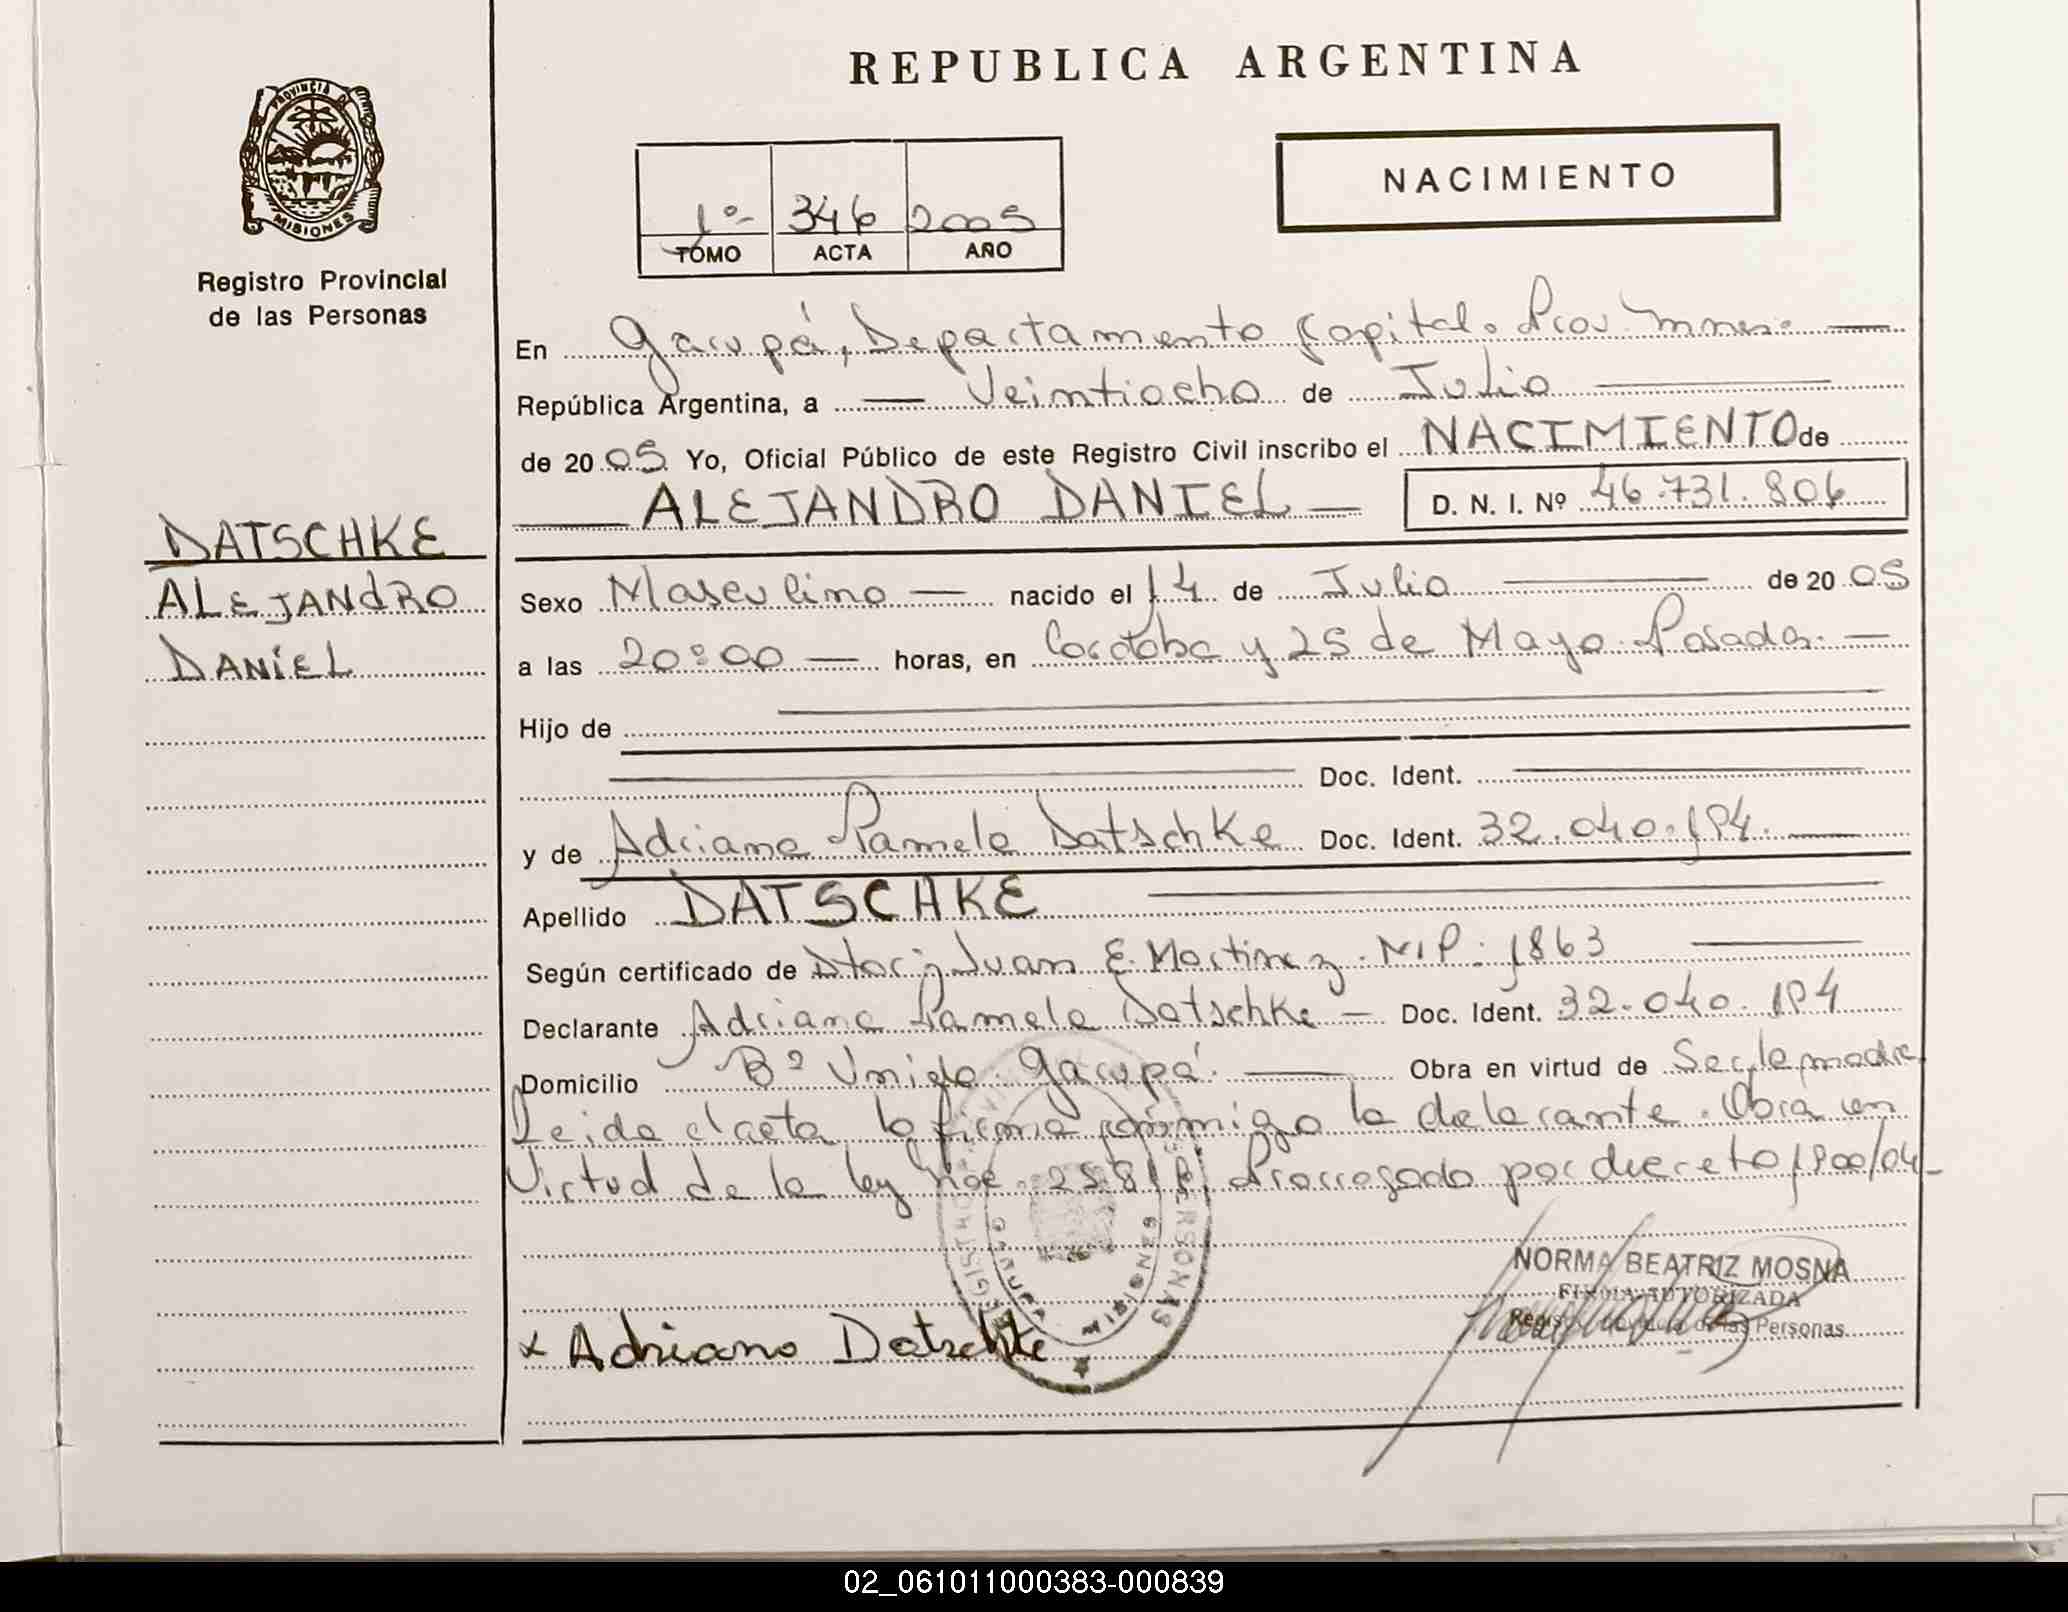 REPUBLICA ARGENTINA
PROVINCIA DE
MISIONES
Registro Provincial
de las Personas
1º
346
2005
TOMO
ACTA
AÑO
NACIMIENTO
En Garupá, Departamento Capital. Prov. Mnes.
República Argentina, a Veintiocho de Julio
de 2005 Yo, Oficial Público de este Registro Civil inscribo el NACIMIENTO de
ALEJANDRO DANIEL
D. N. I. Nº 46.731.806
DATSCHKE
ALEJANDRO
DANIEL
Sexo Masculino nacido el 14 de Julio de 2005
a las 20:00 horas, en Cordoba y 25 de Mayo. Posadas.
Hijo de
Doc. Ident.
y de Adriana Pamela Datschke Doc. Ident. 32.040.194.
Apellido DATSCHKE
Según certificado de Dtor; Juan E. Martinez. M.P: 1863
Declarante Adriana Pamela Datschke Doc. Ident. 32.040.194
Domicilio Bº Unido. Garupá. Obra en virtud de Ser la madre
Leida el acta, la firma conmigo la declarante. Obra en
Virtud de la ley Nac. 25.819, Prorrogado por decreto 1900/04
NORMA BEATRIZ MOSNA
FIRMA AUTORIZADA
Personas
x Adriana Datschke
02_061011000383-000839